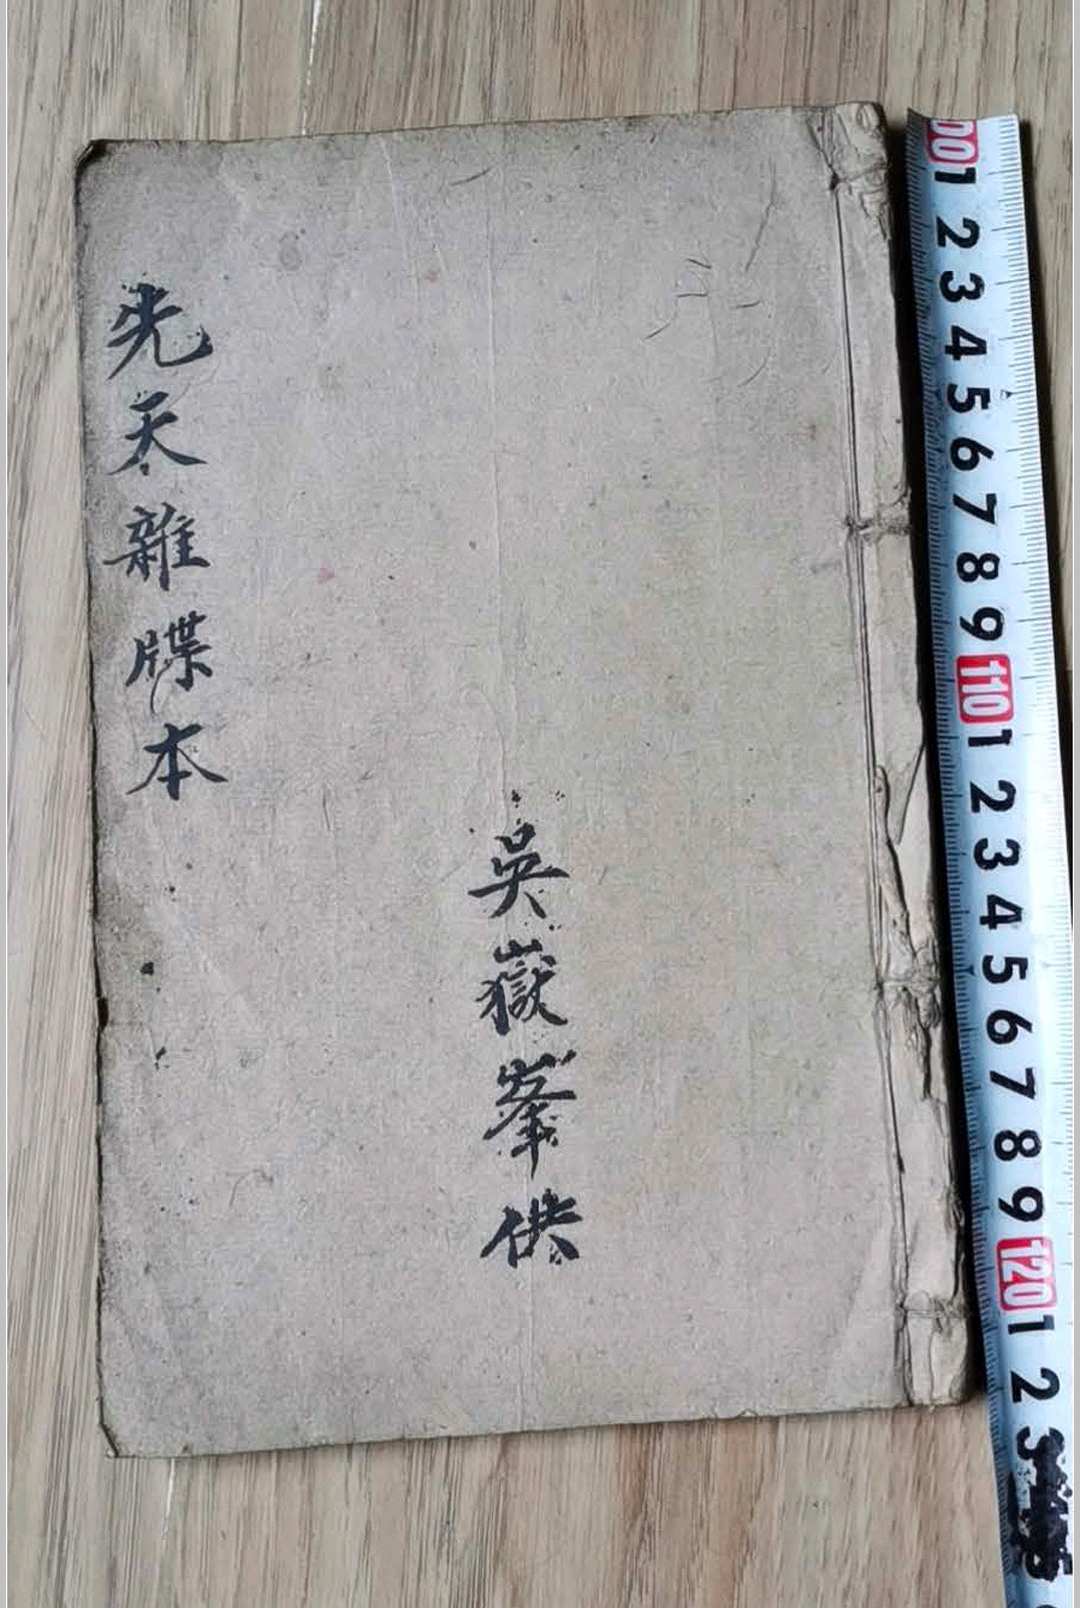 先天雜牒本
吳嶽峯供
001 2 3 4 5 6 7 8 9 110 1 2 3 4 5 6 7 8 9 120 1 2 3